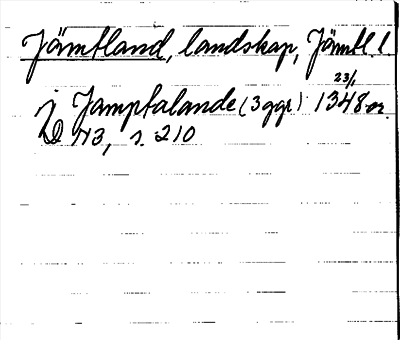 Jämtland, landskap, Jämtl. l.
23/1
i Jamptalande (3 ggr) 1348 or.
N3, s. 210